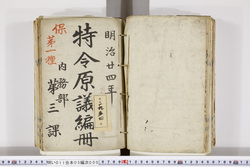 明治廿四年
特令原議編冊
保第一種
内務部
第三課